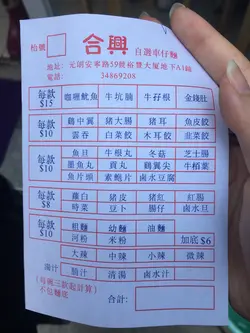 枱號
合興 自選車仔麵
地址：元朗安寧路59號裕豐大廈地下A1鋪
電話：34869208
每款$15 咖喱魷魚 牛坑腩 牛孖根 金錢肚
每款$10 雞中翼 豬大腸 豬耳 魚皮餃
雲吞 白菜餃 韭菜餃
每款$10 魚旦 牛根丸 冬菇 芝士腸
墨魚丸 貢丸 雞翼尖 牛栢葉
魚片頭 素鮑片 鹵水豆腐
每款$8 蘿白 豬皮 豬紅 紅腸
時菜 豆卜 腸仔 鹵水旦
每款$10 粗麵 幼麵 油麵
河粉 米粉 加底$6
大辣 中辣 小辣 微辣
湯汁 腩汁 清湯 鹵水汁
(每碗三款起計算)
不估麵底
合計：